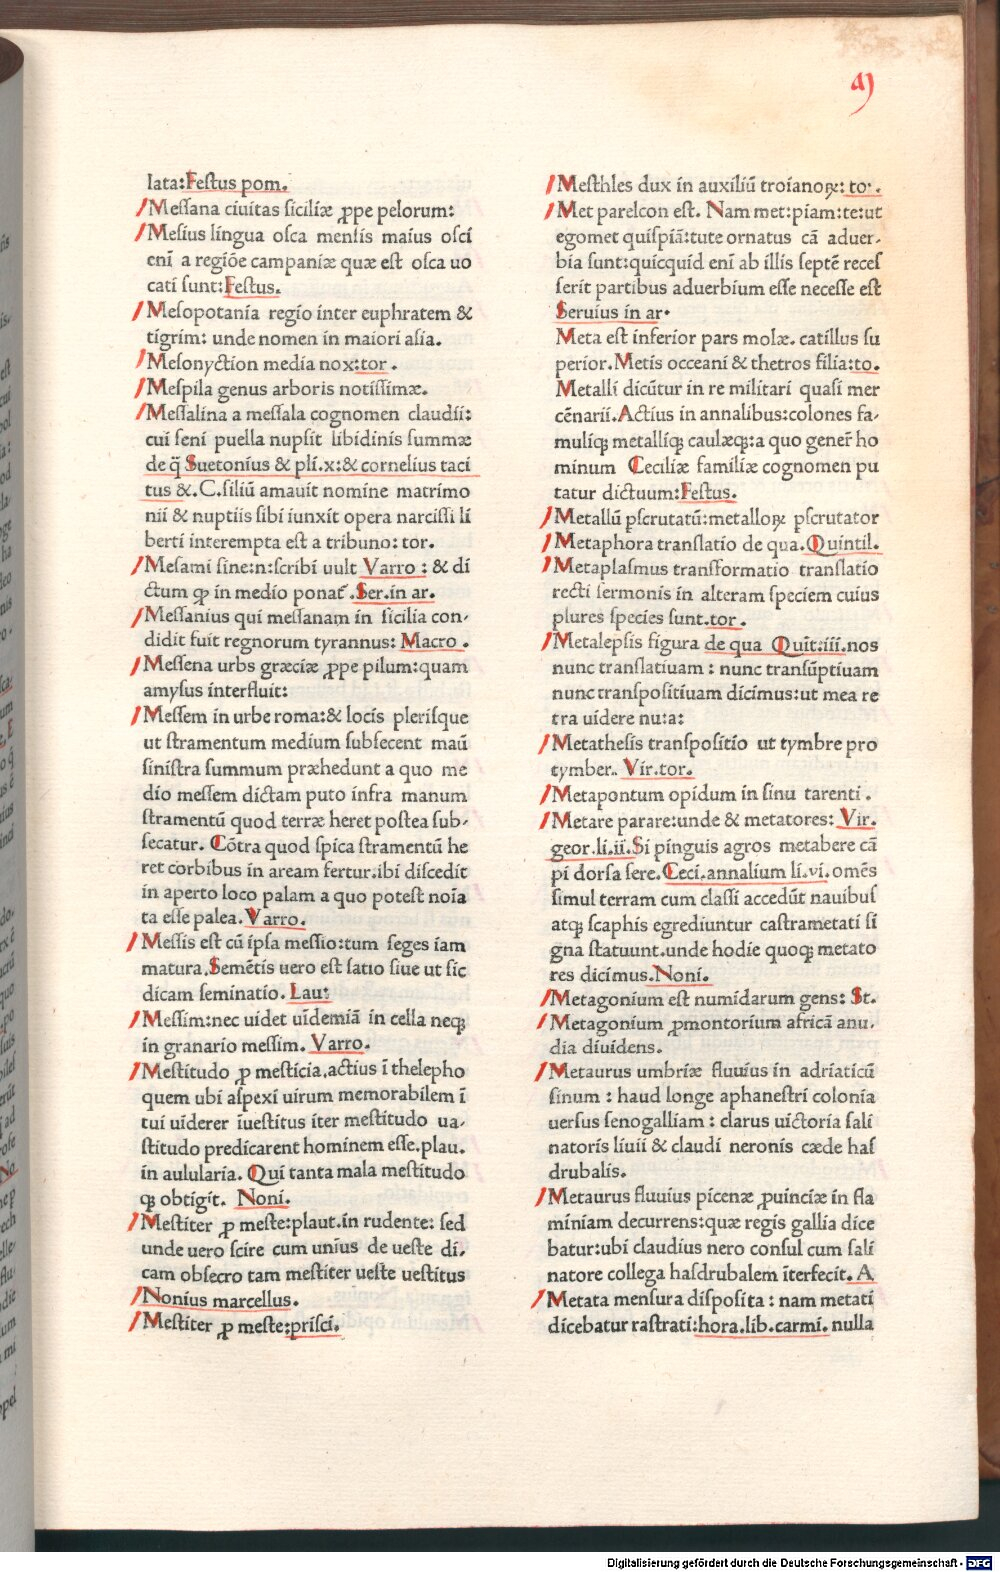 lata:Festus pom.
Messana ciuitas siciliæ ꝓpe pelorum:
Mesius lingua osca mensis maius osci
enī a regiōe campaniæ quæ est osca uo
cati sunt:Festus.
Mesopotania regio inter euphratem &
tigrim: unde nomen in maiori asia.
Mesonyction media nox:tor .
Mespila genus arboris notissimæ.
Messalina a messala cognomen claudii:
cui seni puella nupsit libidinis summæ
de q̄ Suetonius & pli.x:& cornelius taci
tus &.C.siliū amauit nomine matrimo
nii & nuptiis sibi iunxit opera narcissi li
berti interempta est a tribuno: tor.
Mesami sine:n:scribi uult Varro : & di
ctum ꝙ in medio ponat̄ .Ser.in ar.
Messanius qui messanam in sicilia con-
didit fuit regnorum tyrannus: Macro .
Messena urbs græciæ ꝓpe pilum:quam
amysus interfluit:
Messem in urbe roma:& locis plerisque
ut stramentum medium subsecent maū
sinistra summum præhedunt a quo me
dio messem dictam puto infra manum
stramentū quod terræ heret postea sub-
secatur. Cōtra quod spica stramentū he
ret corbibus in aream fertur.ibi discedit
in aperto loco palam a quo potest noīa
ta esse palea. Varro.
Messis est cū ipsa messio:tum seges iam
matura.Semētis uero est satio siue ut sic
dicam seminatio. Lau:
Messim:nec uidet uidemiā in cella neqꝫ
in granario messim. Varro.
Mestitudo ꝓ mesticia.actius ī thelepho
quem ubi aspexi uirum memorabilem ī
tui uiderer iuestitus iter mestitudo ua-
stitudo predicarent hominem esse.plau.
in aulularia. Qui tanta mala mestitudo
qꝫ obtigit. Noni.
Mestiter ꝓ meste:plaut.in rudente: sed
unde uero scire cum unius de ueste di.
cam obsecro tam mestiter ueste uestitus
Nonius marcellus.
Mestiter ꝓ meste:prisci.
Mesthles dux in auxiliū troianoꝝ: to· .
Met parelcon est. Nam met:piam:te:ut
egomet quispiā:tute ornatus cā aduer-
bia sunt:quicquid enī ab illis septē reces
serit partibus aduerbium esse necesse est
Seruius in ar·
Meta est inferior pars molæ. catillus su
perior. Metis occeani & thetros filia:to.
Metalli dicūtur in re militari quasi mer
cēnarii.Actius in annalibus:colones fa-
muliqꝫ metalliqꝫ caulæqꝫ:a quo gener̄ ho
minum Ceciliæ familiæ cognomen pu
tatur dictuum:Festus.
Metallū pscrutatū:metalloꝝ pscrutator
Metaphora translatio de qua. Quintil.
Metaplasmus transformatio translatio
recti sermonis in alteram speciem cuius
plures species sunt.tor .
Metalepsis figura de qua Quīt:iii.nos
nunc translatiuam : nunc transūptiuam
nunc transpositiuam dicimus:ut mea re
tra uidere nu:a:
Metathesis transpositio ut tymbre pro
tymber.. Vir.tor.
Metapontum opidum in sinu tarenti .
Metare parare:unde & metatores: Vir.
geor.li.ii.Si pinguis agros metabere cā
pi dorsa sere. Ceci.annalium li.vi.omēs
simul terram cum classi accedūt nauibus
atqꝫ scaphis egrediuntur castrametati si
gna statuunt.unde hodie quoqꝫ metato
res dicimus.Noni.
Metagonium est numidarum gens: St.
Metagonium ꝓmontorium africā anu.
dia diuidens.
Metaurus umbriæ fluuius in adriaticū
sinum : haud longe aphanestri colonia
uersus senogalliam : clarus uictoria sali
natoris liuii & claudi neronis cæde has
drubalis.
Metaurus fluuius picenæ ꝓuinciæ in fla
miniam decurrens:quæ regis gallia dice
batur:ubi claudius nero consul cum sali
natore collega hasdrubalem īterfecit. A
Metata mensura disposita : nam metati
dicebatur rastrati:hora.lib.carmi. nulla
Digitalisierung gefördert durch die Deutsche Forschungsgemeinschaft - DFG